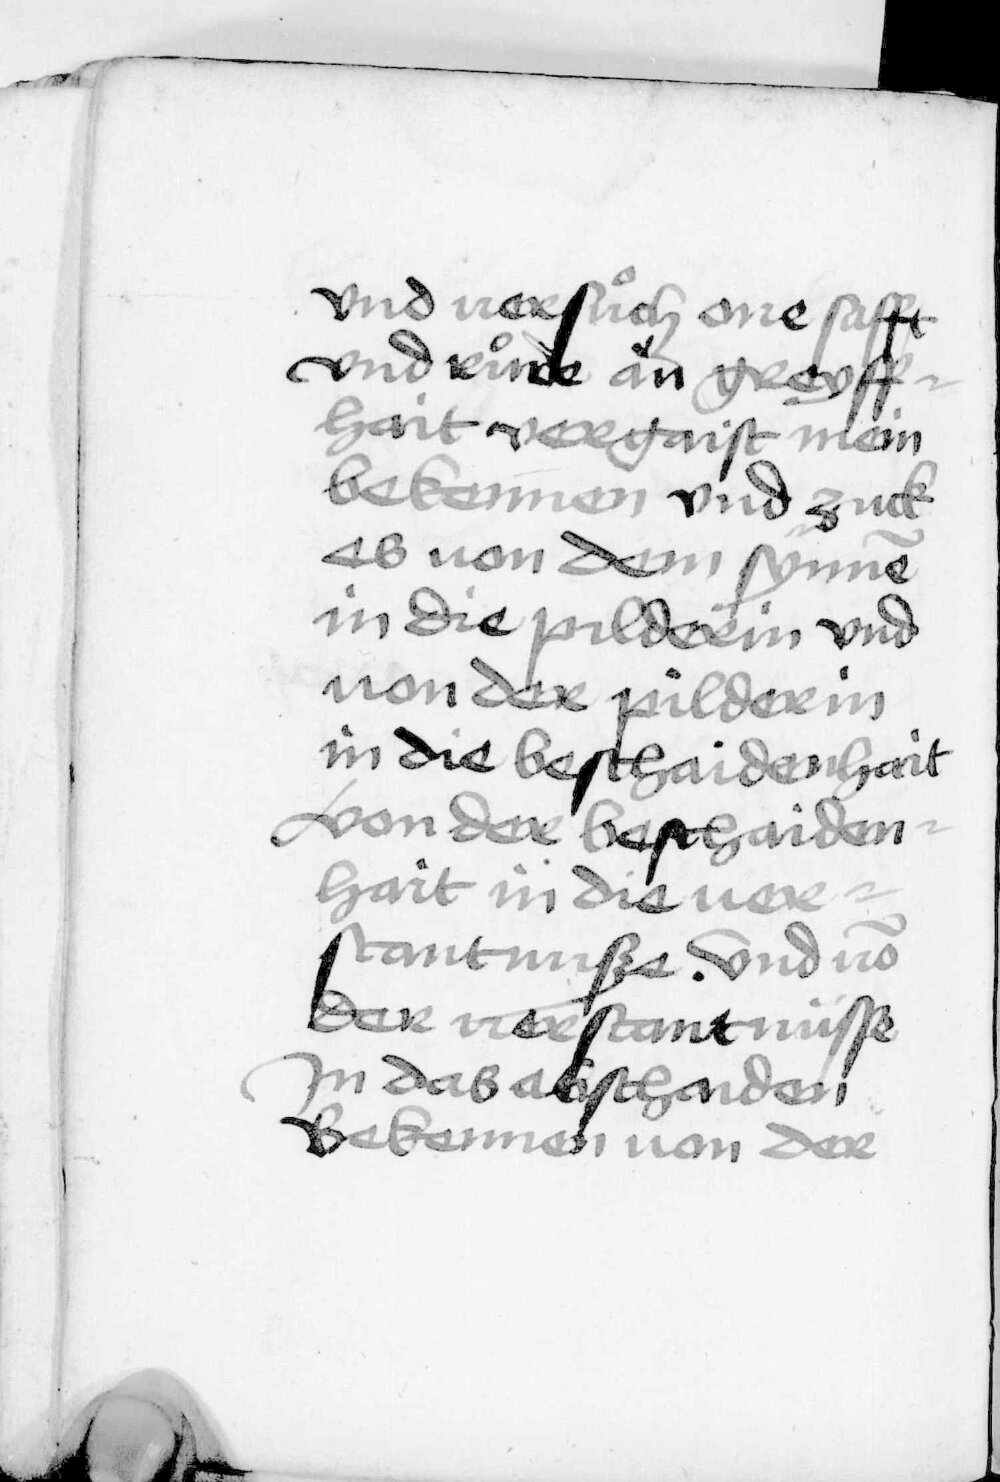 vnd uersůch one safft
vnd růre an greyff-
hait vergaist mein
bekennen vnd zuck
es von dem synnē
in die pilderin vnd
uon der pilderin
in die beschaidenhait
von der beschaiden-
hait in die uer-
stantnusse. Vnd uō
der uerstantnüsse
In das abschaiden
Bekennen uon der